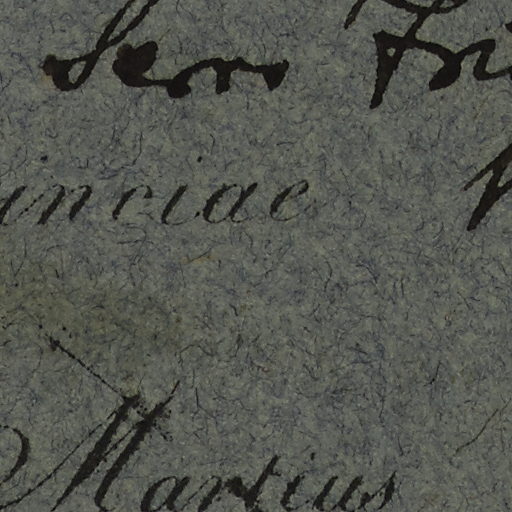 Serro Fri
inciae
Martius